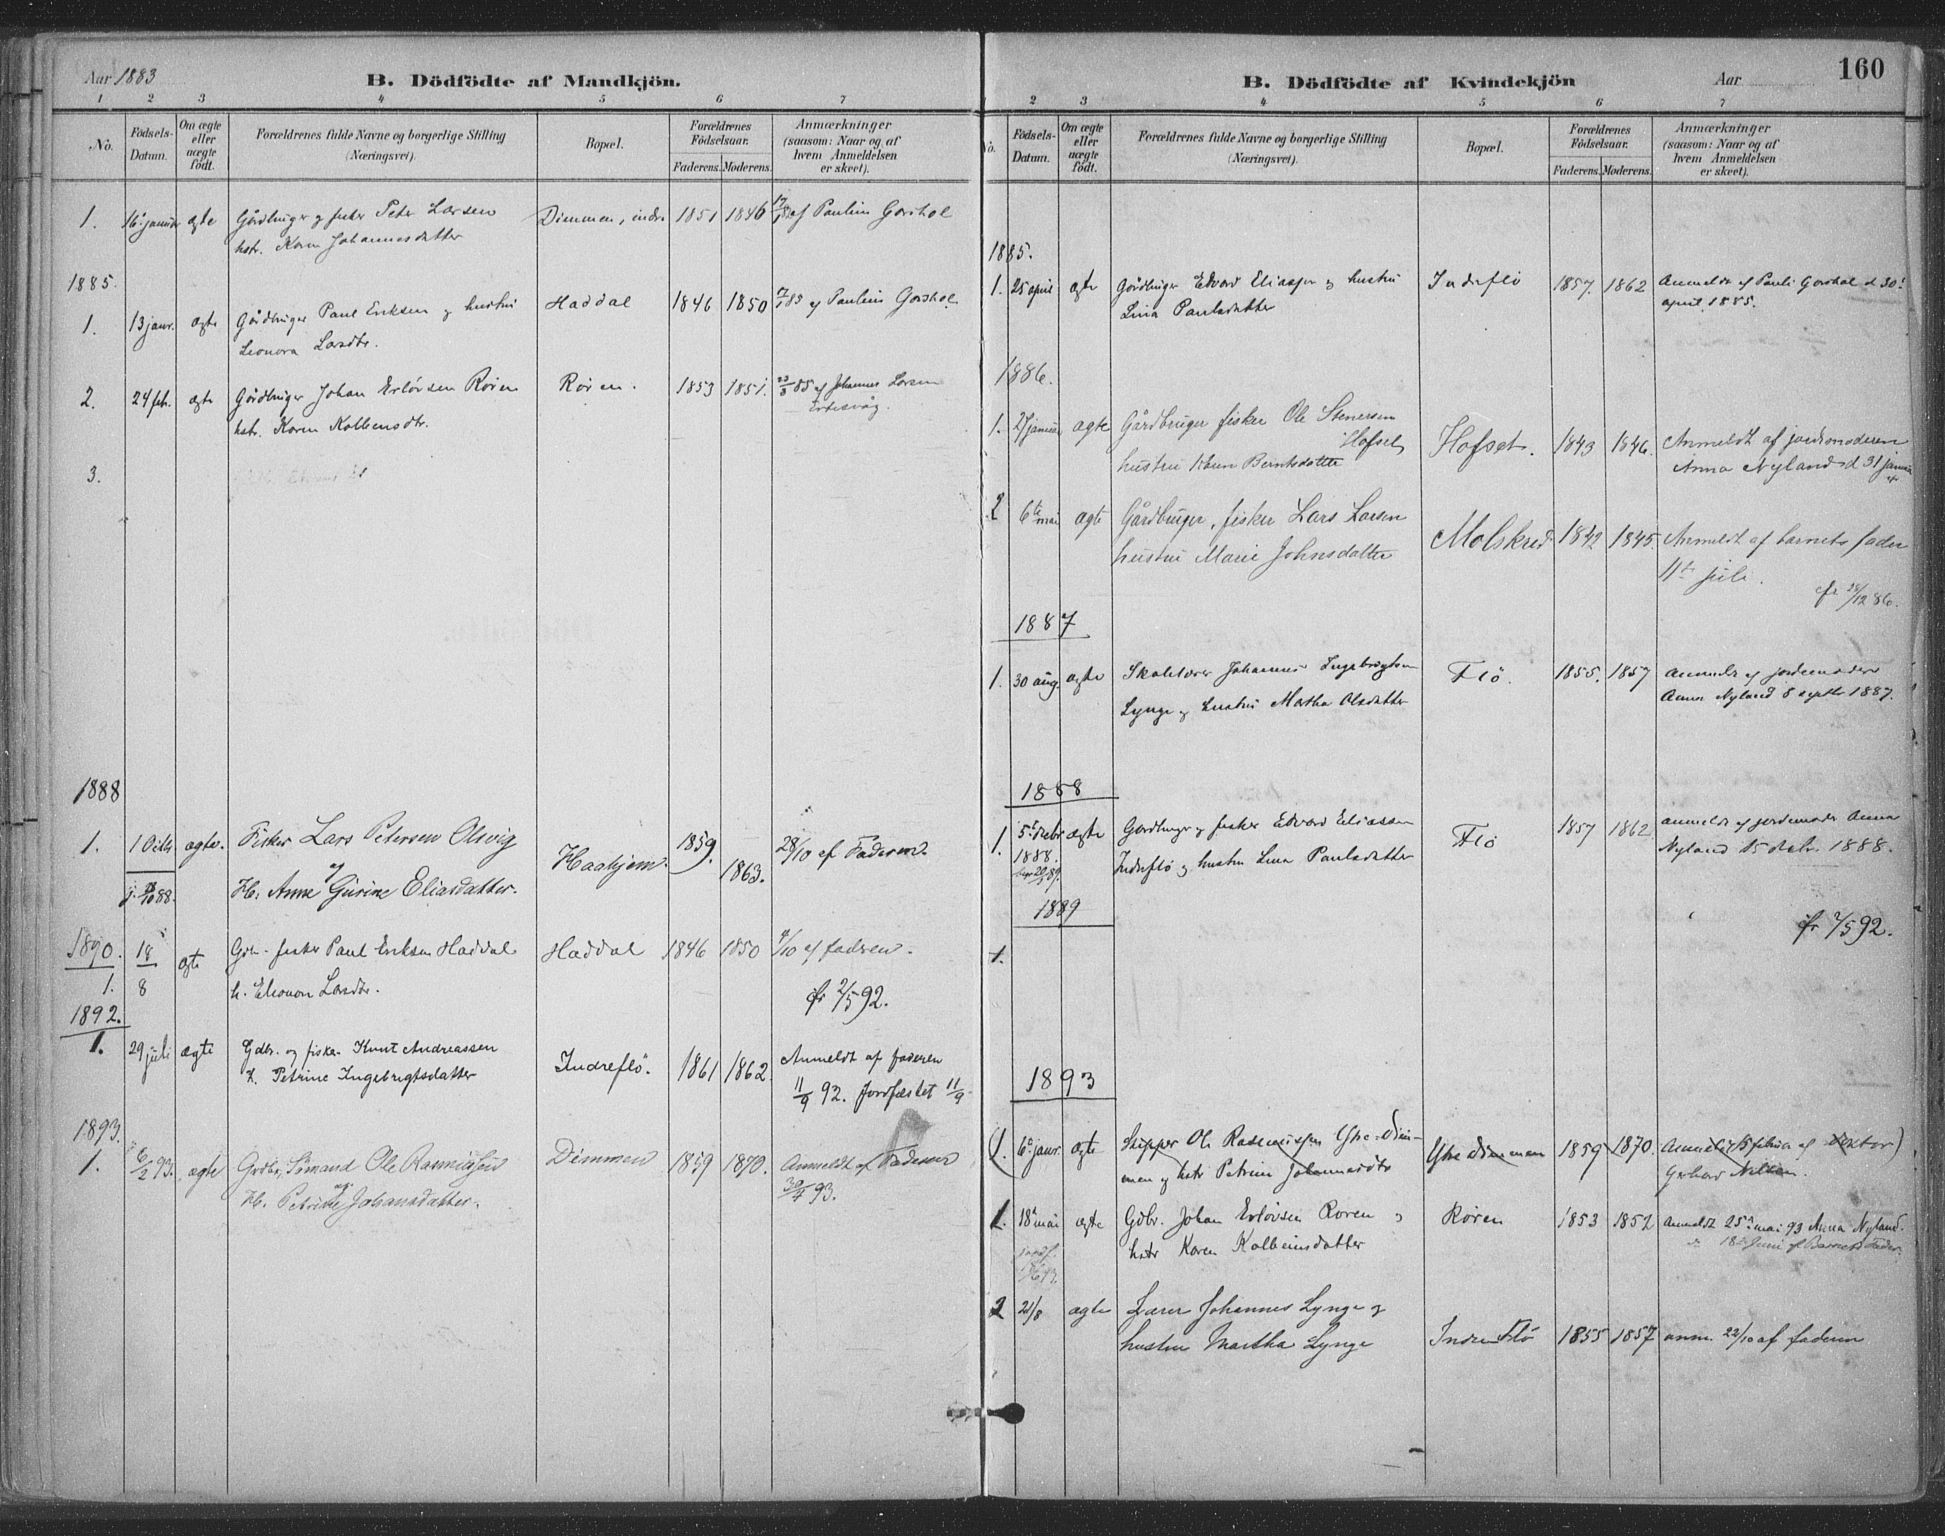 Aar 1883
B. Dödfödte af Mandkjön.
1 2 3 4 5 6 7
No. Födsels-Datum. Om ægte eller uægte födt. Forældrenes fulde Navne og borgerlige Stilling (Næringsvei). Bopæl. Forældrenes Födselsaar. Faderens. Moderens. Anmærkninger (saasom: Naar og af hvem Anmeldelsen er skeet).
1. 16de januar ægte Gårdbruger og fisker Peter Larsen Dimmen, indre 1851 1846 af Paulius Garshol
hstr. Karen Johannesdatter
1885.
1. 13 janr. ægte Gårdbruger Paul Eriksen og hustru Haddal 1846 1850 85 af Paulius Garshol
Leonora Larsdtr.
2. 24 feb. ægte Gårdbruger Johan Erlövsen Rören Rören. 1853 1851. 23/3 85 af Johannes Larsen
hstr. Karen Kolbensdtr. Ertesvåg.
3.
1888
1. 1 Octbr ægte. Fisker Lars Petersen Olsvig Haahjem. 1859. 1863. 28/10 af Faderen.
og
H. Anne Gurine Eliasdatter.
1890. 18 ægte Gbr. fisker Paul Eriksen Haddal Haddal 1846 1850 /10 af fadren.
1. 8 h. Elionora Larsdtr. 2/5 92.
1892.
1. 29 juli ægte Gdbr. og fisker Knut Andreassen Indreflö. 1861 1862. Anmeldt af faderen
h. Petrine Ingebrigtsdatter 11/9 92. Jordfæstet 11/9
1893.
1. 6/2 93. ægte Grdbr, Sömand Ole Rasmussen Dimmen 1859 1870. Anmeldt af Faderen
og
H. Petrine Johansdatter. 30/4 93.
160
B. Dödfödte af Kvindekjön
Aar
2 3 4 5 6 7
No. Födsels-Datum. Om ægte eller uægte födt. Forældrenes fulde Navne og borgerlige Stilling (Næringsvei). Bopæl. Forældrenes Födselsaar. Faderens. Moderens. Anmærkninger (saasom: Naar og af hvem Anmeldelsen er skeet).
1885.
1. 25 april ægte Gårdbruger Edvard Eliassen og hustru Indreflö 1857. 1862 Anmeldt af Pauli Garshol d 30te
Lina Paulsdatter april 1885.
1886.
1. 27 januar ægte Gårdbruger fisker Ole Stenersen
Hofset Hofset. 1843 1846. Anmeldt af jordmoderen
hustru Karen Berntsdatter Anna Nyland d 31 januar
2 6te mai ægte Gårdbruger, fisker Lars Larsen Molskred 1842 1845. Anmeldt af barnets fader
hustru Marie Johnsdatter 11te juli.
28/12 86.
1887
1. 30 aug. ægte Skolelærer Johannes Ingebrigtsen Flö. 1855. 1857 Anmeldt af jordemoder
Lynge og hustru Martha Olsdatter Anna Nyland 8 septbr 1887.
1888
1. 5te decbr ægte Gardbruger og fisker Edvard Eliassen Flö 1857 1862 anmeldt af jordemoder Anna
1888. Indreflö og hustru Lina Paulsdatter Nyland 15 decbr. 1888.
1889
1. 2/5 92.
1893
(1. 6te janr. ægte Skipper Ole Rasmussen Ytre-Dim- Ytre Dimmen 1859 1870. Anmeldt 15 februa af doktor)
men og hstr Petrine Johannesdtr Gerhard
1. 18de mai ægte Gdbr. Johan Erlövsen Rören og Rören 1853 1852 Anmeldt 25de mai 93 Anna Nyland.
hstr Karen Kolbeinsdatter 18de Juni af Barnets Fader.
2 21/8 ægte Lærer Johannes Lynge og
hustru Martha Lynge Indre Flö 1855 1857 anm. 22/10 af faderen